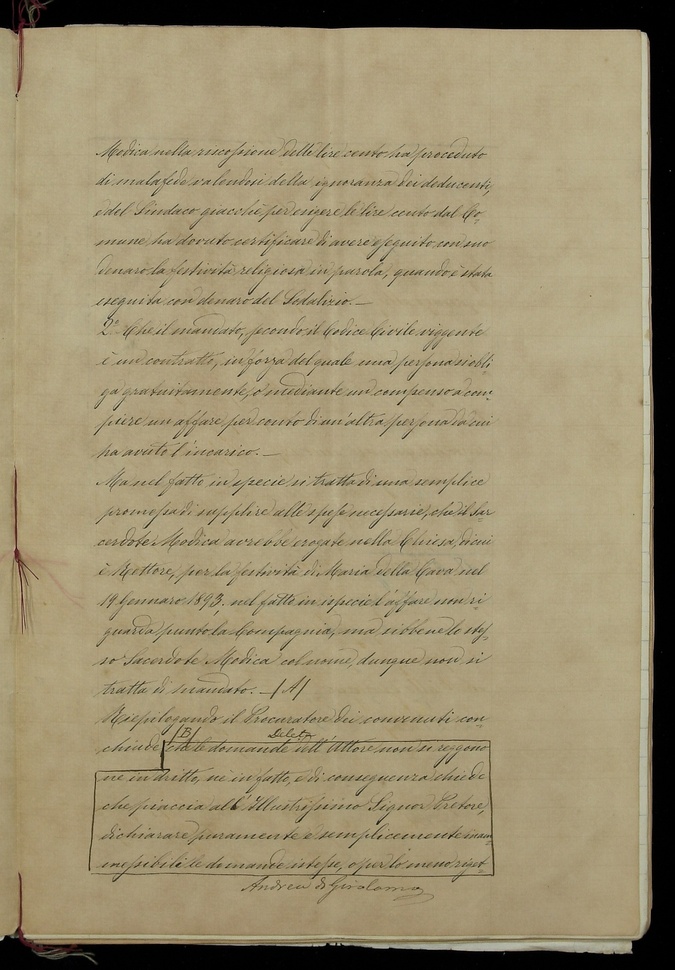 Modica nella riscossione delle lire cento ha proceduto
di malafede valendosi della ignoranza dei deducenti,
e del Sindaco giacchè per esigere le lire cento dal Co=
mune, ha dovuto certificare di avere eseguito con suo
denaro la festività religiosa in parola, quando è stata
eseguita con denaro del Sodalizio. —
2.° Che il mandato, secondo il Codice Civile viggente
è un contratto, in forza del quale una persona si obbli
ga gratuitamente, o mediante un compenso a com=
piere un affare per conto di un'altra persona da cui
ha avuto l'incarico. —
Ma nel fatto in specie si tratta di una semplice
promessa di supplire alle spese necessarie, che il Sa=
cerdote Modica avrebbe erogate nella Chiesa, di cui
è Rettore, per la festività di Maria della Cava nel
19 Gennaro 1893. nel fatto in ispecie l'affare non ri
guarda punto la Compagnia, ma sibbene lo stes=
so Sacerdote Modica col nome, dunque non si
tratta di mandato. — /A/
Riepilogando il Procuratore dei convenuti con=
/B/ Deleta
chiude che le domande dell'Attore non si reggono
nè in dritto, nè in fatto, e di conseguenza chiede
che piaccia all'Illustrissimo Signor Pretore,
dichiarare puramente e semplicemente inam=
messibili le domande istesse, o per lo meno riget=
Andrea di Girolamo